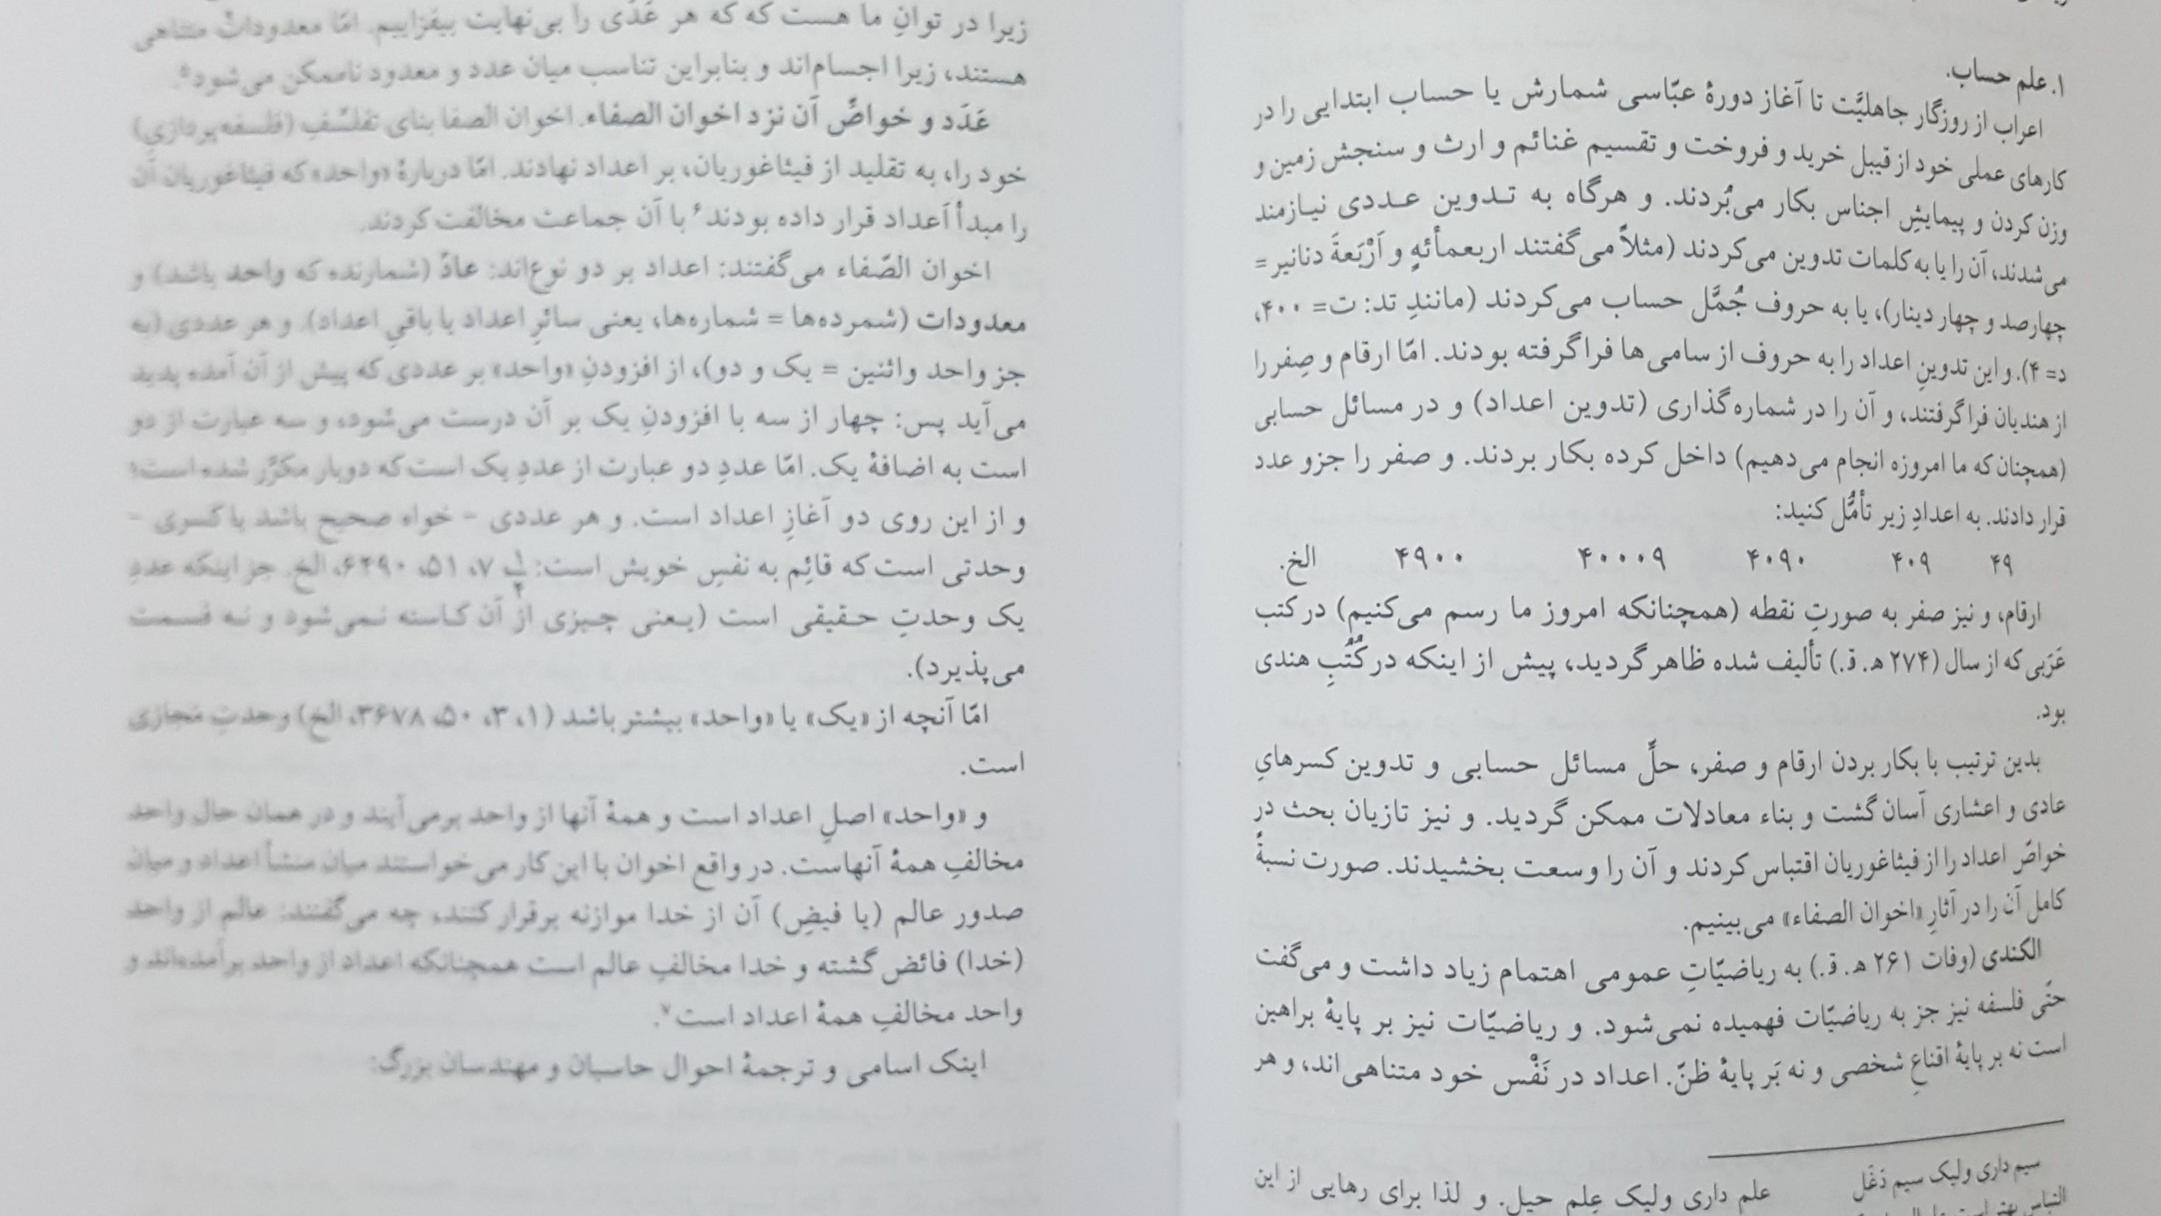 ۱. علم حساب.
اعراب از روزگار جاهلیَّت تا آغاز دورهٔ عبّاسی شمارش یا حساب ابتدایی را در
کارهای عملی خود از قیبل خرید و فروخت و تقسیم غنائم و ارث و سنجش زمین و
وزن کردن و پیمایشِ اجناس بکار می‌بُردند. و هرگاه به تدوین عددی نیازمند
می‌شدند، آن را یا به کلمات تدوین می‌کردند (مثلاً می‌گفتند اربعمأئهٍ و اَرْبَعةَ دنانیر =
چهارصد و چهار دینار)، یا به حروف جُمَّل حساب می‌کردند (مانندِ تد: ت= ۴۰۰،
د= ۴). و این تدوینِ اعداد را به حروف از سامی‌ها فراگرفته بودند. امّا ارقام و صِفر را
از هندیان فراگرفتند، و آن را در شماره‌گذاری (تدوین اعداد) و در مسائل حسابی
(همچنان که ما امروزه انجام می‌دهیم) داخل کرده بکار بردند. و صفر را جزو عدد
قرار دادند. به اعدادِ زیر تأمُّل کنید:
۴۹ ۴۰۹ ۴۰۹۰ ۴۰۰۰۹ ۴۹۰۰ الخ.
ارقام، و نیز صفر به صورتِ نقطه (همچنانکه امروز ما رسم می‌کنیم) در کتب
عَرَبی که از سال (۲۷۴ ه‍. ق.) تألیف شده ظاهر گردید، پیش از اینکه در کُتُبِ هندی
بود.
بدین ترتیب با بکار بردن ارقام و صفر، حلِّ مسائل حسابی و تدوین کسرهایِ
عادی و اعشاری آسان گشت و بناء معادلات ممکن گردید. و نیز تازیان بحث در
خواصّ اعداد را از فیثاغوریان اقتباس کردند و آن را وسعت بخشیدند. صورت نسبةً
کامل آن را در آثارِ «اخوان الصفاء» می‌بینیم.
الکندی (وفات ۲۶۱ ه‍. ق.) به ریاضیّاتِ عمومی اهتمام زیاد داشت و می‌گفت
حتّی فلسفه نیز جز به ریاضیّات فهمیده نمی‌شود. و ریاضیّات نیز بر پایهٔ براهین
است نه بر پایهٔ اقناعِ شخصی و نه بَر پایهٔ ظنّ. اعداد در نَفْس خود متناهی‌اند، و هر
سیم داری ولیک سیم دَغَل علم داری ولیک عِلم حیل. و لذا برای رهایی از این
التباس بهتر است
زیرا در توانِ ما هست که که هر عَدَدی را بی‌نهایت بیفزاییم. امّا معدوداتْ متناهی
هستند، زیرا اجسام‌اند و بنابراین تناسب میان عدد و معدود ناممکن می‌شود۵.
عَدَد و خواصِّ آن نزد اخوان الصفاء. اخوان الصفا بنای تفلسُفِ (فلسفه‌پردازیِ)
خود را، به تقلید از فیثاغوریان، بر اعداد نهادند. امّا دربارهٔ «واحد» که فیثاغوریان آن
را مبدأ اَعداد قرار داده بودند۶ با آن جماعت مخالفت کردند.
اخوان الصّفاء می‌گفتند: اعداد بر دو نوع‌اند: عادّ (شمارنده که واحد باشد) و
معدودات (شمرده‌ها = شماره‌ها، یعنی سائرِ اعداد یا باقیِ اعداد). و هر عددی (به
جز واحد واثنین = یک و دو)، از افزودنِ «واحد» بر عددی که پیش از آن آمده پدید
می‌آید پس: چهار از سه با افزودنِ یک بر آن درست می‌شود، و سه عبارت از دو
است به اضافهٔ یک. امّا عددِ دو عبارت از عددِ یک است که دوبار مکرَّر شده است؛
و از این روی دو آغازِ اعداد است. و هر عددی - خواه صحیح باشد یا کسری -
وحدتی است که قائِم به نفسِ خویش است: ۱/۴، ۷، ۵۱، ۶۴۹۰، الخ. جز اینکه عددِ
یک وحدتِ حقیقی است (یعنی چیزی از آن کاسته نمی‌شود و نه قسمت
می‌پذیرد).
امّا آنچه از «یک» یا «واحد» بیشتر باشد (۱، ۳، ۵۰، ۳۶۷۸، الخ) وحدتِ مَجازی
است.
و «واحد» اصلِ اعداد است و همهٔ آنها از واحد برمی‌آیند و در همان حال واحد
مخالفِ همهٔ آنهاست. در واقع اخوان با این کار می‌خواستند میان منشأ اعداد و میان
صدور عالم (یا فیضِ) آن از خدا موازنه برقرار کنند، چه می‌گفتند: عالم از واحد
(خدا) فائض گشته و خدا مخالفِ عالم است همچنانکه اعداد از واحد برآمده‌اند و
واحد مخالفِ همهٔ اعداد است۷.
اینک اسامی و ترجمهٔ احوال حاسبان و مهندسان بزرگ: